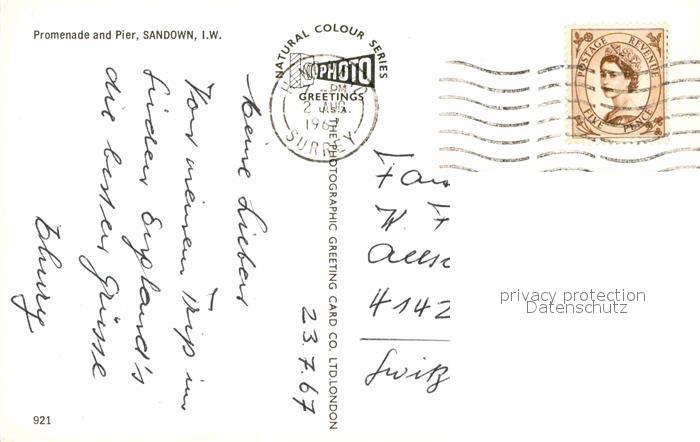 Promenade and Pier, SANDOWN, I.W.
NATURAL COLOUR SERIES
PHOTO
GREETINGS
U.S.A.
PM
2 AUG
196
SURREY
THE PHOTOGRAPHIC GREETING CARD CO. LTD. LONDON
POSTAGE REVENUE
FIVE PENCE
Meine Lieben
Von meinem Trip im
Süden England's
die besten Grüsse
23.7.67
4142
Switz
privacy protection
Datenschutz
921